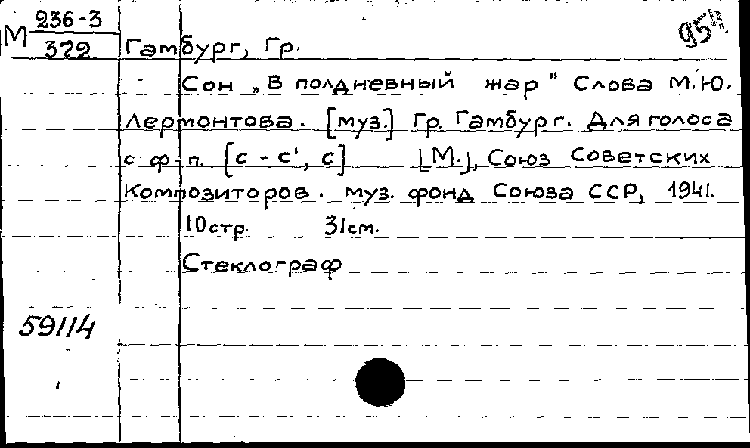 М 236-3
372
954
Гамбург, Гр.
Сон „В полдневный жар" Слова М.Ю.
Лермонтова. [муз.] Гр. Гамбург. Для голоса
с ф-п. [c - c', c] [М.], Союз Советских
Композиторов. муз. фонд Союза ССР, 1941.
10стр. 31см.
Стеклограф
59114